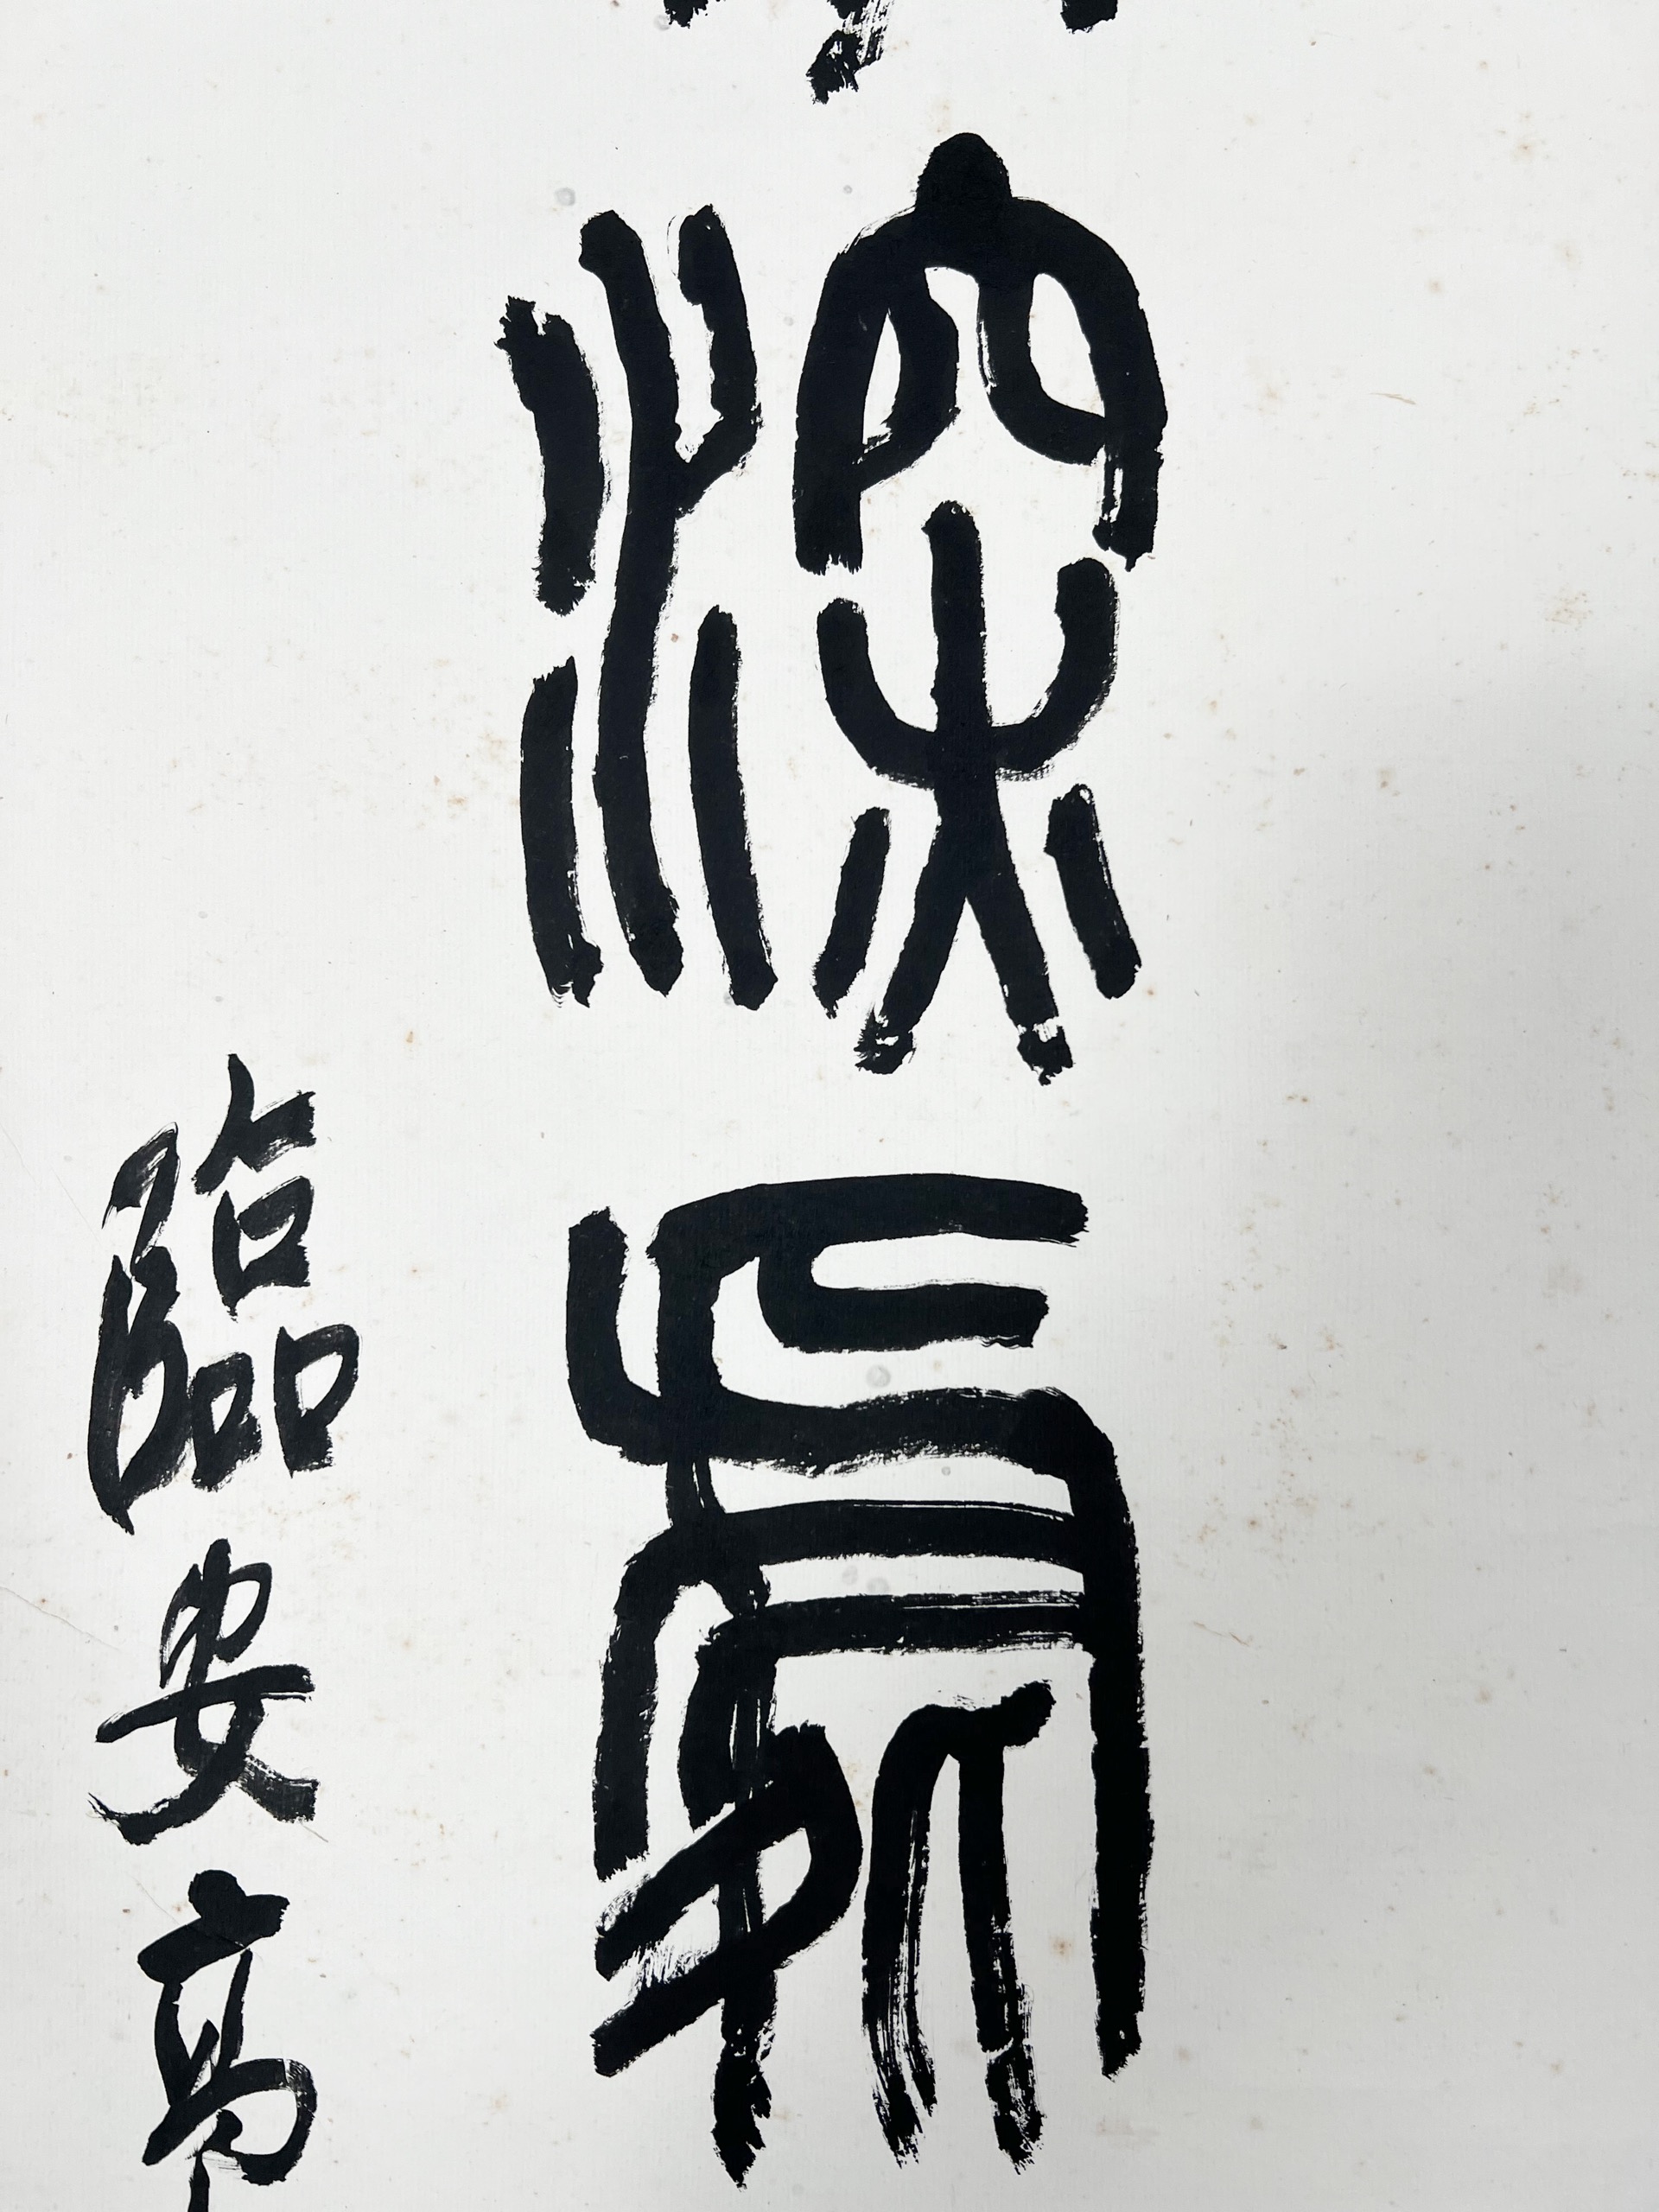 深處
臨安高